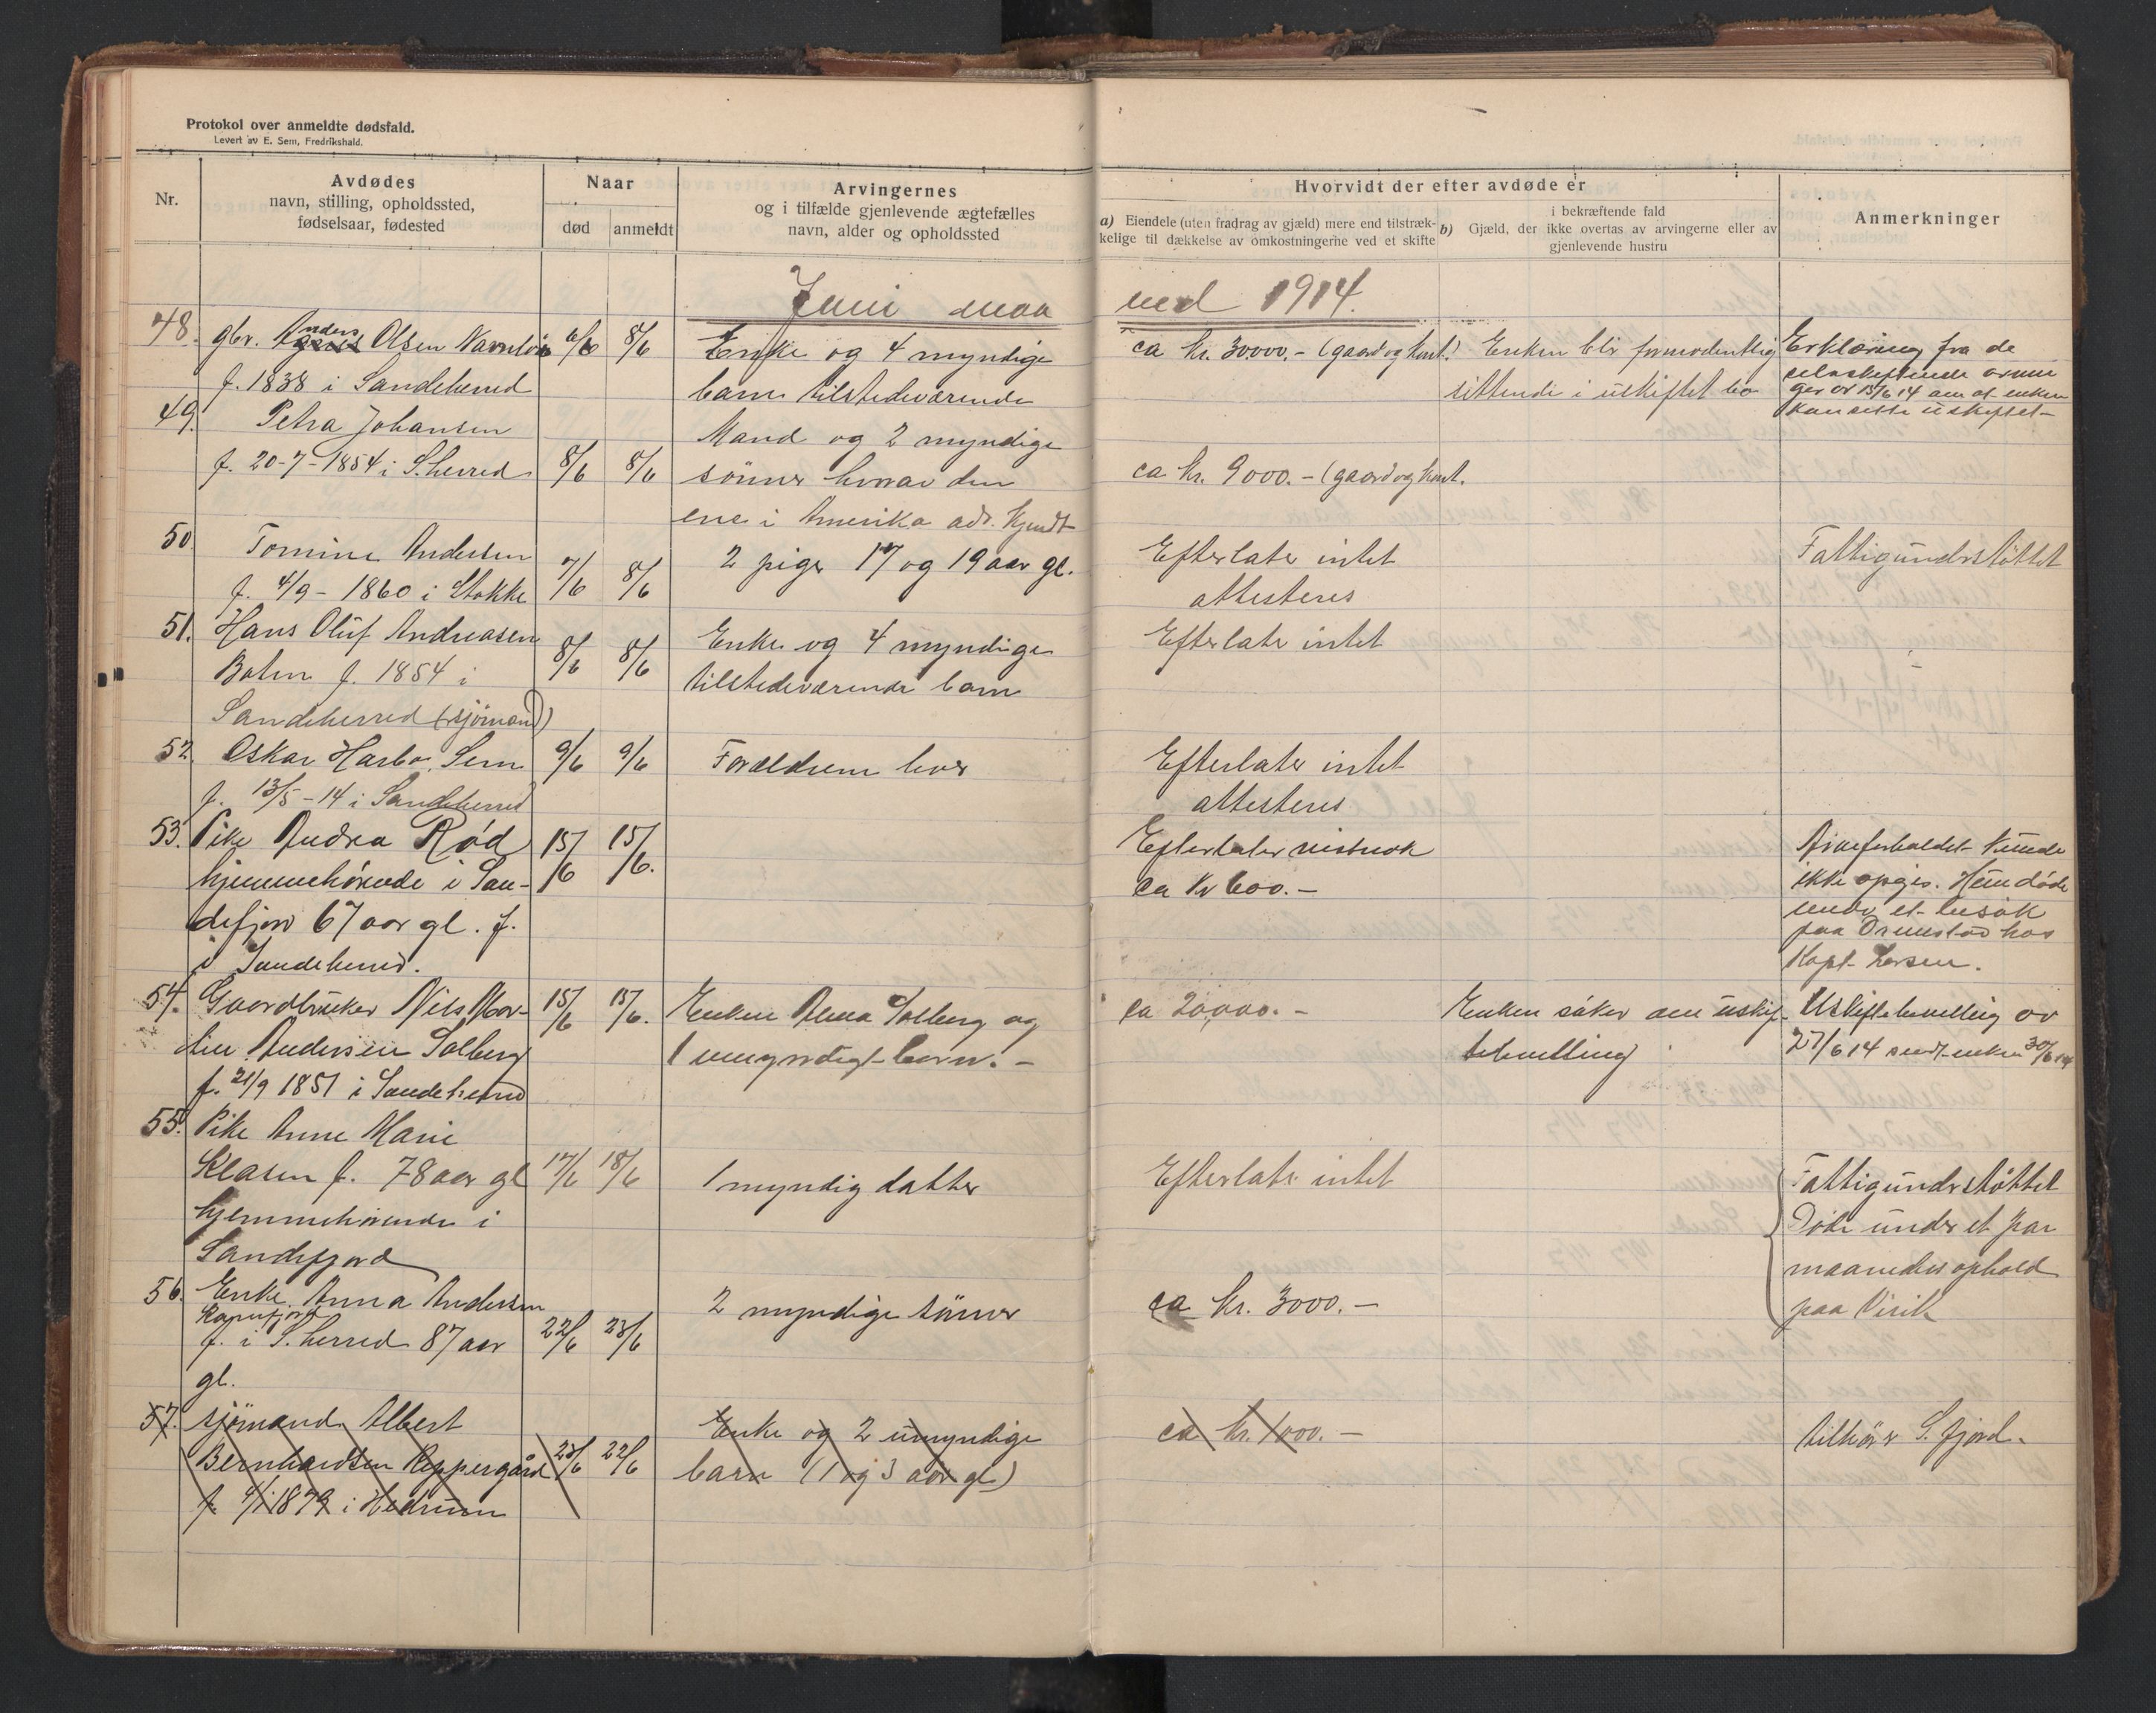 Protokol over anmeldte dødsfald.
Levert av E. Sem, Fredrikshald.
Nr.
Avdødes
navn, stilling, opholdssted,
fødselsaar, fødested
Naar
død
anmeldt
Arvingernes
og i tilfælde gjenlevende ægtefælles
navn, alder og opholdssted
Hvorvidt der efter avdøde er
a) Eiendele (uten fradrag av gjæld) mere end tilstræk-
kelige til dækkelse av omkostningerne ved et skifte
b) Gjæld, der
i bekræftende fald
ikke overtas av arvingerne eller av
gjenlevende hustru
Anmerkninger
Juni maa ned 1914.
48. gbr. Anders Olsen
f. 1838 i Sandeherred
6/6 8/6
Enke og 4 myndige
barn tilstedeværende
ca kr. 30000.- (gaard og kont.)
Enken blir formodentlig
sittende i uskiftet bo
Erklæring fra de
selvskiftende arvin
ger av 15/6 14 om at enken
kan sitte uskiftet
49. Petra Johansen
f. 20-7-1854 i S.herred
8/6 8/6
Mand og 2 myndige
sönner hvorav den
ene i Amerika adr. kjendt
ca kr. 9000.- (gaard og kont.
50. Tomine Andersen
f. 4/9 - 1860 i Stokke
7/6 8/6
2 piger 17 og 19 aar gl.
Efterlater intet
attesteres
Fattigunderstöttet
51. Hans Oluf Andreasen
f. 1854 i
Sandeherred (sjömand)
8/6 8/6
Enke og 4 myndige
tilstedeværende barn
Efterlater intet
52. Oskar Harbo Sem
f. 13/5 - 14 i Sandeherred
9/6 9/6
Forældrene lever
Efterlater intet
attesteres
53. Pike Andrea Rød
hjemmehörende i San-
defjord 67 aar gl. f.
i Sandeherred.
15/6 15/6.
Efterlater vistnok
ca Kr 600.-
Arveforholdet kunde
ikke opgis. Hun döde
under et besök
paa Ormestad hos
Kapt. Larsen.
54. Gaardbruker Nils Mar-
tin Andersen Solberg
f. 21/9 1851 i Sandeherred
15/6 15/6.
Enken Anna Solberg og
1 umyndigt barn. -
ca 20,000. -
Enken söker om uskif-
tebevilling
Uskiftebevilling av
27/6 14 sendt enken 30/6 14
55. Pike Anne Marie
Klasen f. 78 aar gl
hjemmehörende i
Sandefjord
17/6 18/6
1 myndig datter
Efterlater intet
Fattigunderstöttet
Döde under et par
maaneders ophold
paa Virik
56. Enke Anna Andersen
f. i S.herred 87 aar
gl.
22/6 23/6
2 myndige sönner
ca kr. 3000. -
57. sjömand Albert
Bernhardsen
f. 1879 i Hedrum
22/6
Enke og 2 umyndige
barn (1 og 3 aar gl)
ca kr. 1000. -
tilhör S.fjord.